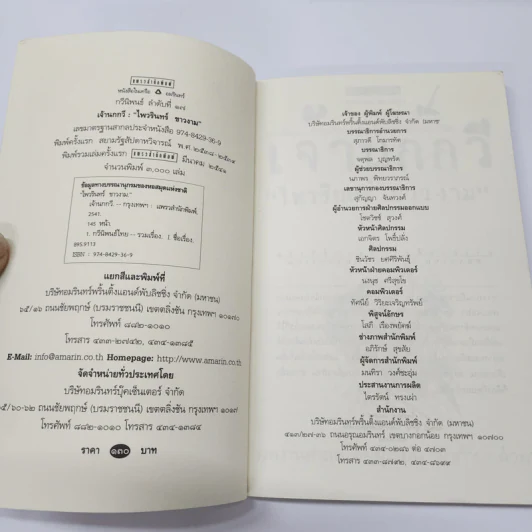 แพรวสำนักพิมพ์
หนังสือในเครือ อมรินทร์
กวีนิพนธ์ ลำดับที่ ๑๗
เจ้านกกวี : "ไพวรินทร์ ขาวงาม"
เลขมาตรฐานสากลประจำหนังสือ 974-8429-36-9
พิมพ์ครั้งแรก สยามรัฐสัปดาหวิจารณ์ พ.ศ. ๒๕๓๘-๒๕๓๙
พิมพ์รวมเล่มครั้งแรก แพรวสำนักพิมพ์ มีนาคม ๒๕๔๑
จำนวนพิมพ์ ๓,๐๐๐ เล่ม
ข้อมูลทางบรรณานุกรมของหอสมุดแห่งชาติ
"ไพวรินทร์ ขาวงาม."
เจ้านกกวี. -- กรุงเทพฯ : แพรวสำนักพิมพ์,
2541.
145 หน้า
1. กวีนิพนธ์ไทย -- รวมเรื่อง. I. ชื่อเรื่อง.
895.9113
ISBN : 974-8429-36-9
แยกสีและพิมพ์ที่
บริษัทอมรินทร์พริ้นติ้งแอนด์พับลิชชิ่ง จำกัด (มหาชน)
๖๕/๑๖ ถนนชัยพฤกษ์ (บรมราชชนนี) เขตตลิ่งชัน กรุงเทพฯ ๑๐๑๗๐
โทรศัพท์ ๘๘๒-๑๐๑๐
โทรสาร ๔๓๓-๒๗๔๒, ๔๓๔-๑๓๘๕
E-Mail: info@amarin.co.th Homepage: http://www.amarin.co.th
จัดจำหน่ายทั่วประเทศโดย
บริษัทอมรินทร์บุ๊คเซ็นเตอร์ จำกัด
๖๕/๖๐-๖๒ ถนนชัยพฤกษ์ (บรมราชชนนี) เขตตลิ่งชัน กรุงเทพฯ
โทรศัพท์ ๘๘๒-๑๐๑๐ โทรสาร ๔๓๔-๑๓๘๔
ราคา ๑๓๐ บาท
เจ้าของ ผู้พิมพ์ ผู้โฆษณา
บริษัทอมรินทร์พริ้นติ้งแอนด์พับลิชชิ่ง จำกัด (มหาช
บรรณาธิการอำนวยการ
สุภาวดี โกมารทัต
บรรณาธิการ
จตุพล บุญพรัด
ผู้ช่วยบรรณาธิการ
นภาพร พิทยวราภรณ์
เลขานุการกองบรรณาธิการ
สุกัญญา จันทวงศ์
ผู้อำนวยการฝ่ายศิลปกรรมออกแบบ
โชควิชช์ สุวงศ์
หัวหน้าศิลปกรรม
เอกจิตร โพธิ์ปลั่ง
ศิลปกรรม
ชินวัชร ยศศิริพันธุ์
หัวหน้าฝ่ายคอมพิวเตอร์
นงนุช ศรีสุขโข
คอมพิวเตอร์
ทัศนีย์ วิริยะเจริญทรัพย์
พิสูจน์อักษร
โสภี เรืองพยัคฆ์
ช่างภาพสำนักพิมพ์
อภิรักษ์ สุขสัย
ผู้จัดการสำนักพิมพ์
มนทิรา วงศ์ชะอุ่ม
ประสานงานการผลิต
ไตรรัตน์ ทรงเผ่า
สำนักงาน
บริษัทอมรินทร์พริ้นติ้งแอนด์พับลิชชิ่ง จำกัด (มหาชน)
๔๑๓/๒๗-๓๖ ถนนอรุณอมรินทร์ เขตบางกอกน้อย กรุงเทพฯ ๑๐๗๐๐
โทรศัพท์ ๔๓๔-๐๒๘๖ ต่อ ๔๗๐๓
โทรสาร ๔๓๓-๘๗๙๒, ๔๓๔-๘๖๙๙